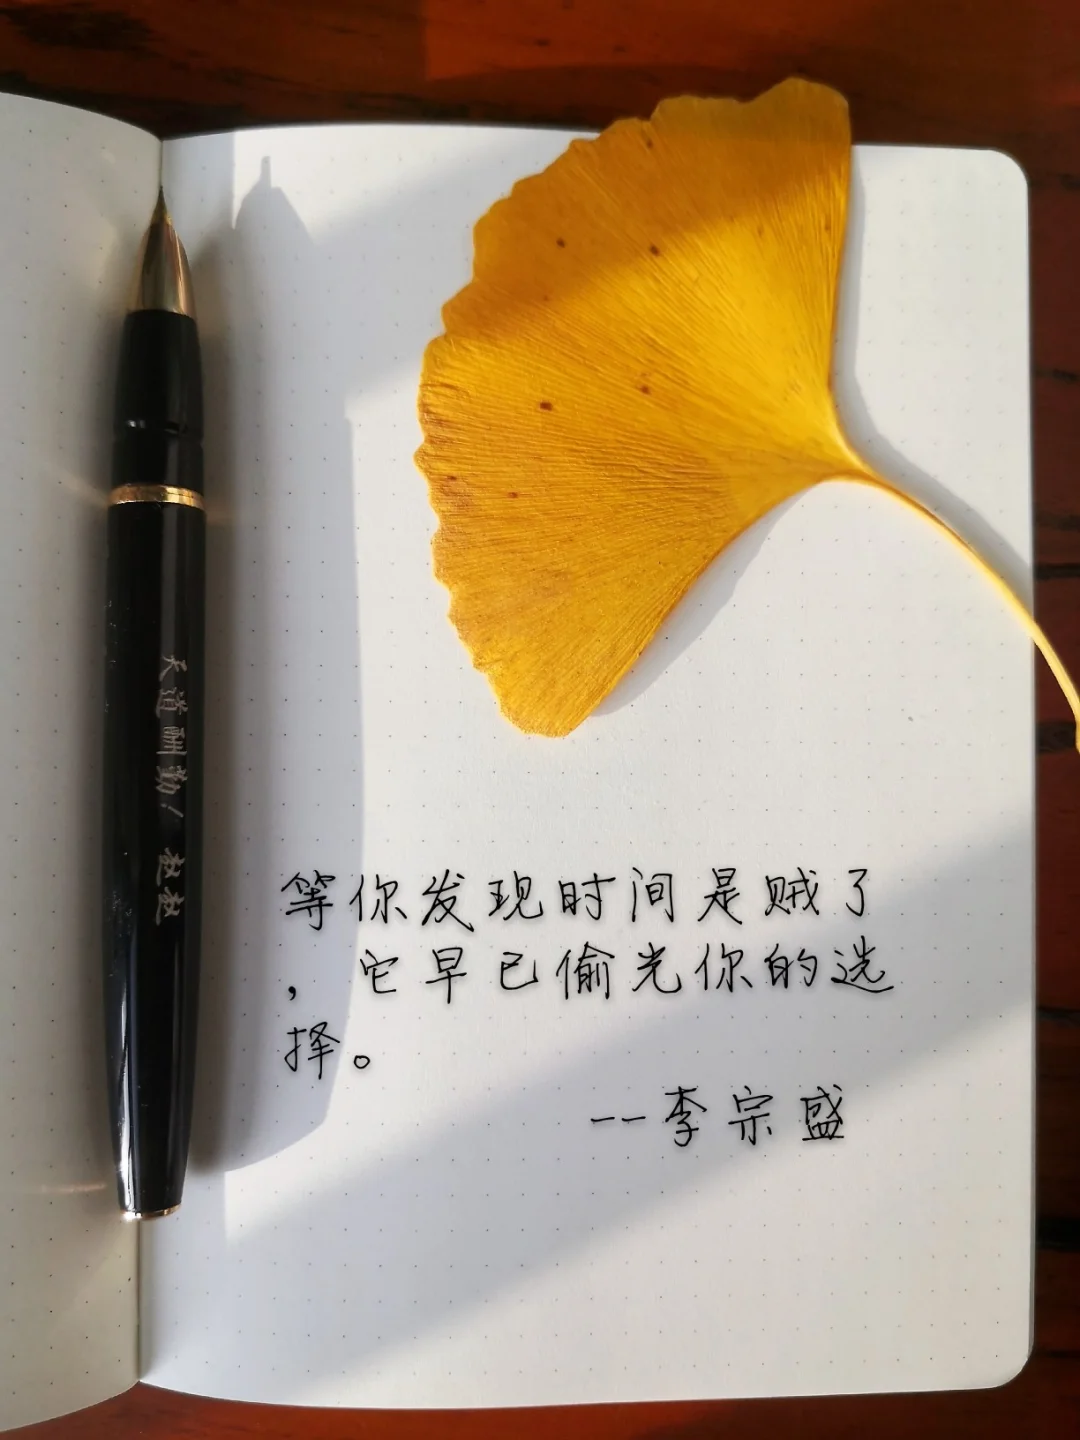 天道酬勤！ 赵赵
等你发现时间是贼了
，它早已偷光你的选
择。
--李宗盛